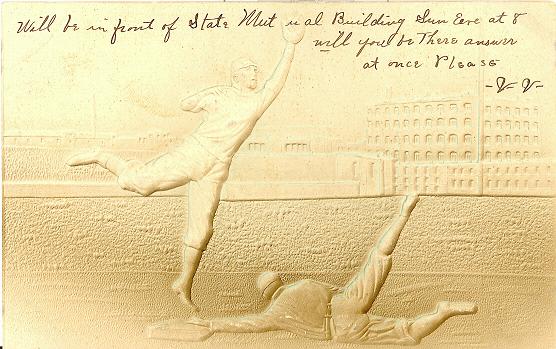 Will be in front of State Mutual Building Sun Eve at 8
will you be There answer
at once Please
- V V -